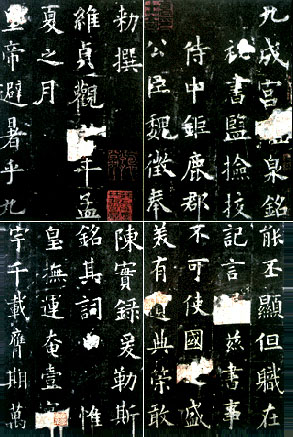 九成宮泉銘
秘書監檢挍
侍中鉅鹿郡
公臣魏徵奉
勑撰
維貞觀年孟
夏之月
皇帝避暑乎九
能丕顯但職在
記言兹書事
不可使國盛
美有典策敢
陳實錄爰勒斯
銘其詞惟
皇撫運奄壹
宇千載膺期萬